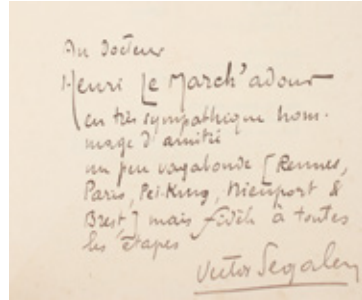 Au Docteur
Henri Le March'adour
en très sympathique hom-
mage d'amitié
un peu vagabonde [Rennes,
Paris, Pei-King, Nieuport &
Brest,] mais fidèle à toutes
les étapes
Victor Segalen